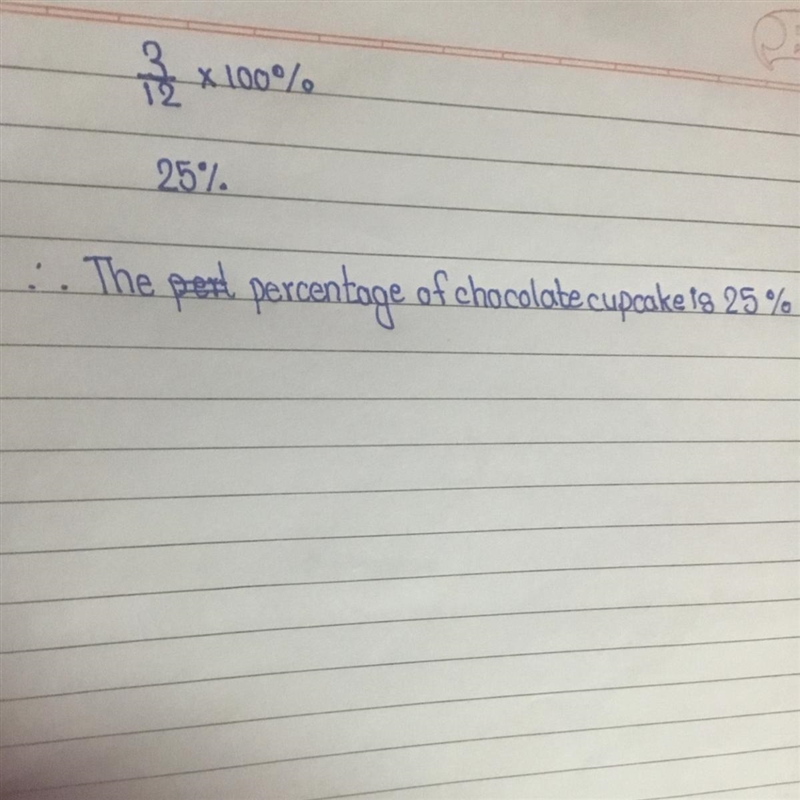 3/12 × 100%
25%.
∴ The percentage of chocolate cupcake is 25%